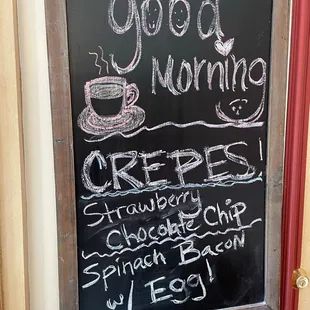 good
Morning
CREPES!
Strawberry
Chocolate Chip
Spinach Bacon
w/ Egg!